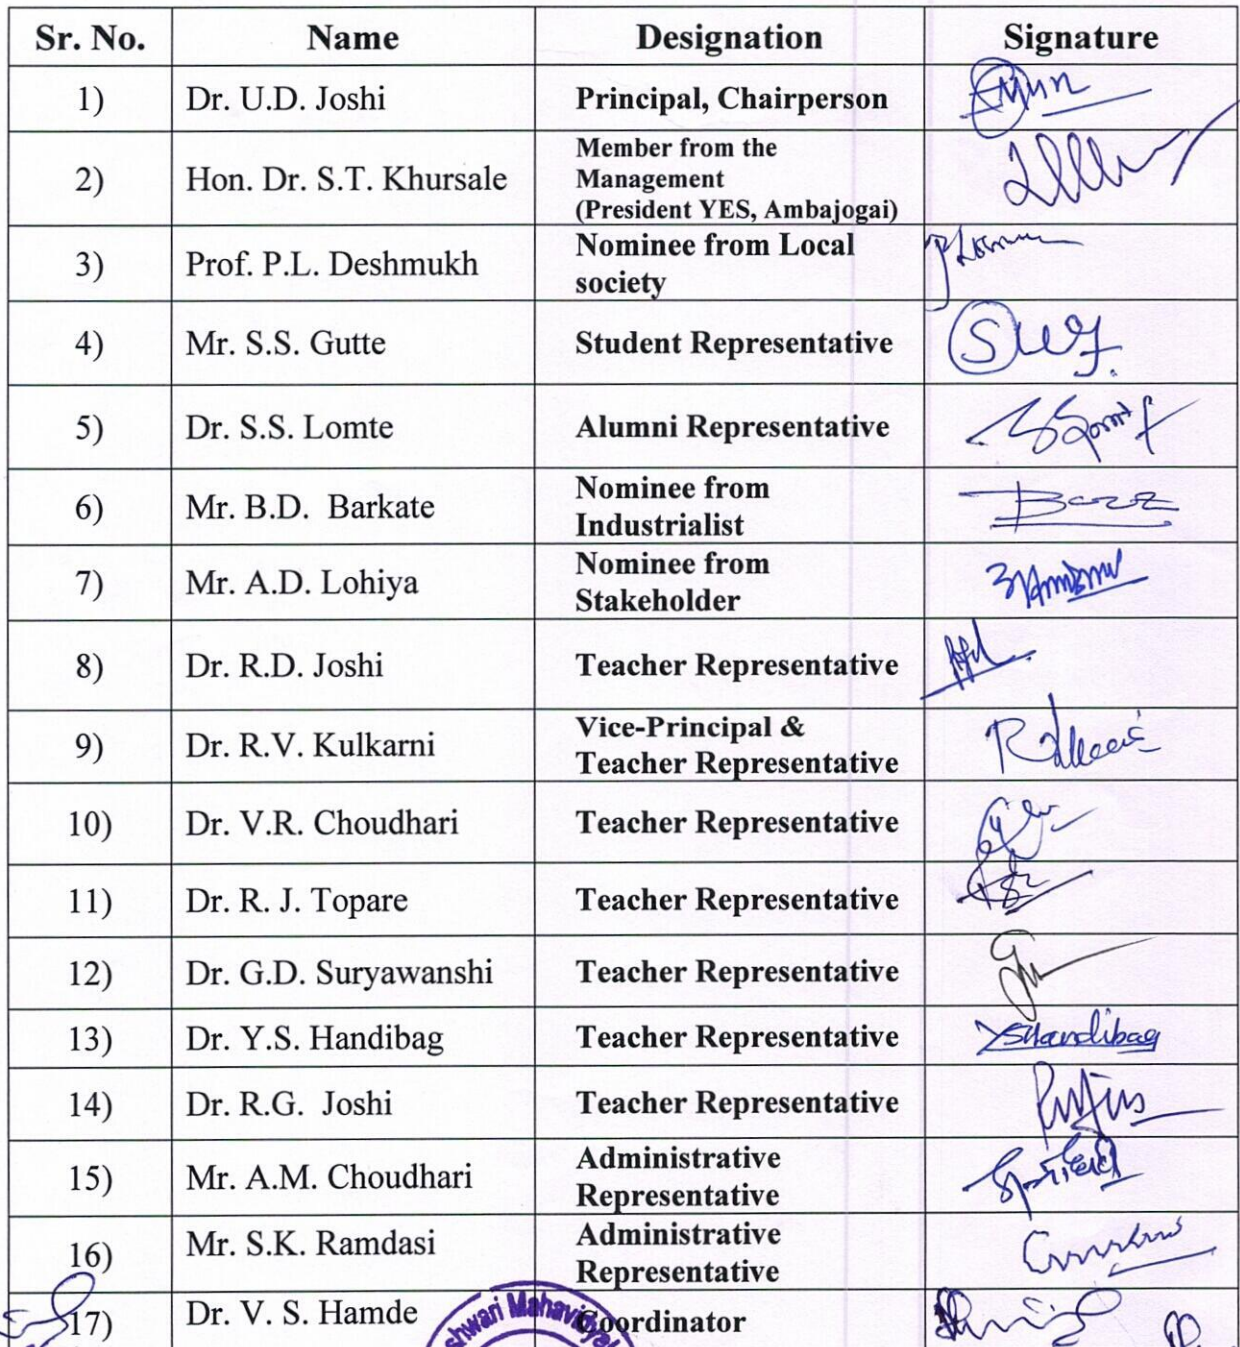 Sr. No. Name Designation Signature
1) Dr. U.D. Joshi Principal, Chairperson
2) Hon. Dr. S.T. Khursale Member from the
Management
(President YES, Ambajogai)
3) Prof. P.L. Deshmukh Nominee from Local
society
4) Mr. S.S. Gutte Student Representative
5) Dr. S.S. Lomte Alumni Representative
6) Mr. B.D. Barkate Nominee from
Industrialist
7) Mr. A.D. Lohiya Nominee from
Stakeholder
8) Dr. R.D. Joshi Teacher Representative
9) Dr. R.V. Kulkarni Vice-Principal &
Teacher Representative
10) Dr. V.R. Choudhari Teacher Representative
11) Dr. R. J. Topare Teacher Representative
12) Dr. G.D. Suryawanshi Teacher Representative
13) Dr. Y.S. Handibag Teacher Representative YSHandibag
14) Dr. R.G. Joshi Teacher Representative
15) Mr. A.M. Choudhari Administrative
Representative
16) Mr. S.K. Ramdasi Administrative
Representative
17) Dr. V. S. Hamde Coordinator